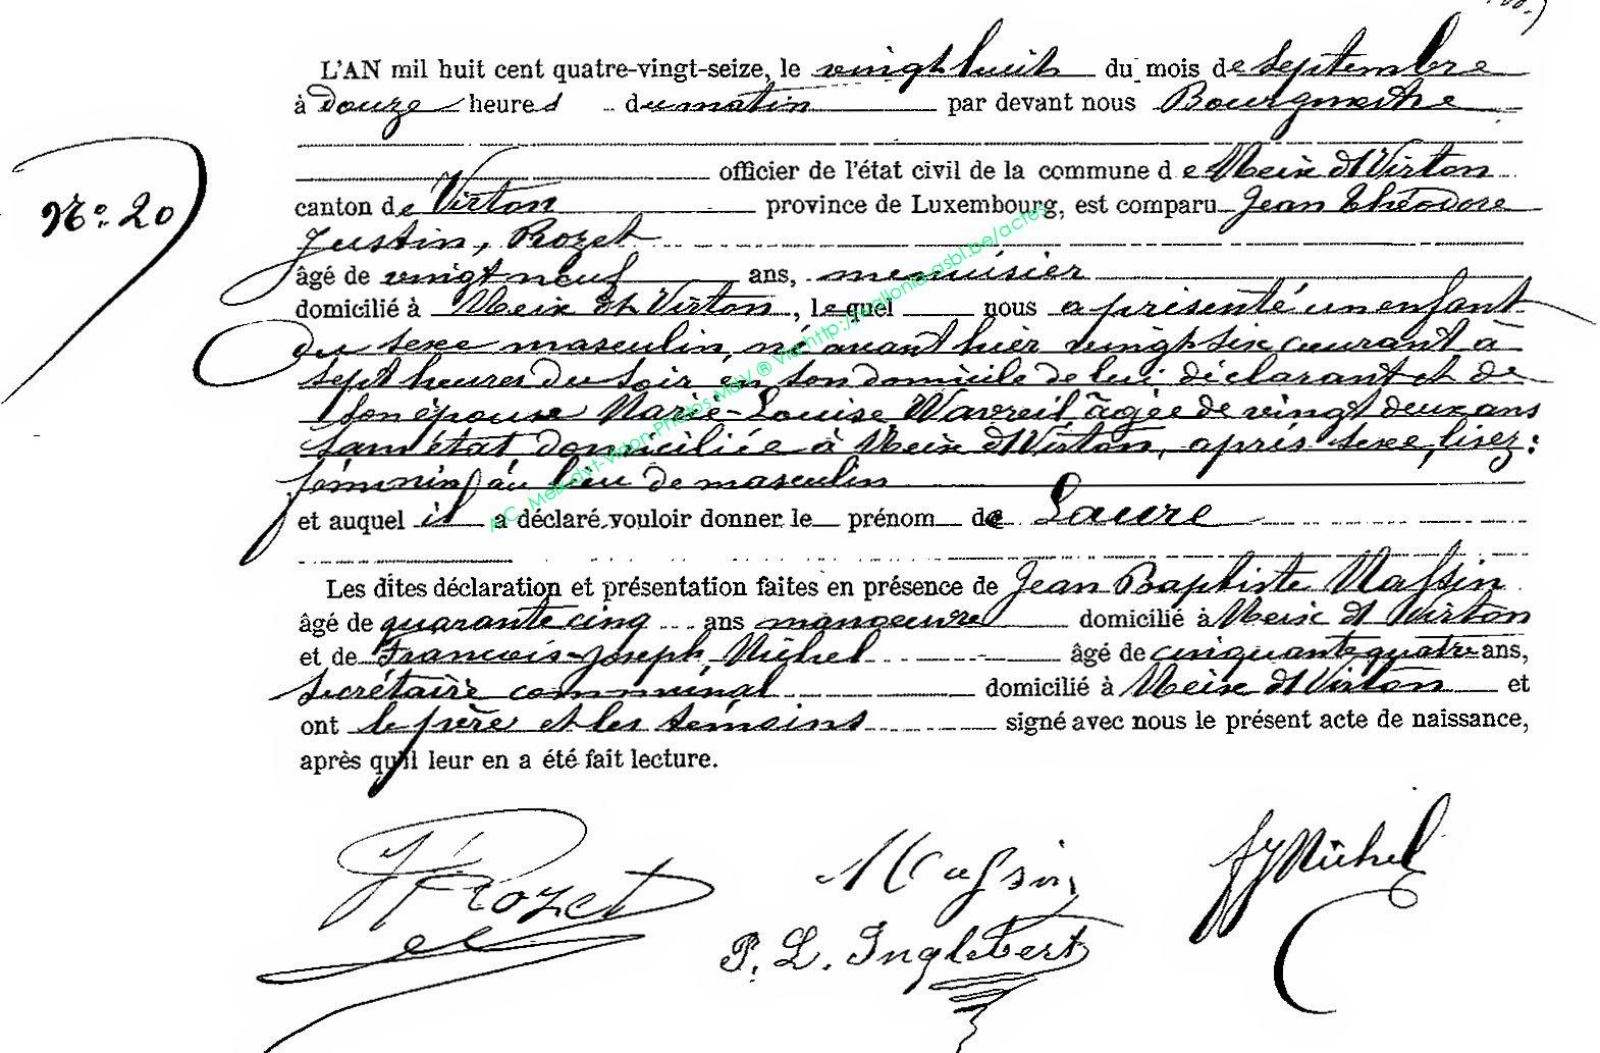 L'AN mil huit cent quatre-vingt-seize, le vingt huit du mois de septembre
à douze heures du matin par devant nous Bourgmestre
officier de l'état civil de la commune de Meix dt Virton
N° 20
canton de Virton province de Luxembourg, est comparu Jean Théodore
Justin, Rozet
âgé de vingt neuf ans, menuisier
domicilié à Meix dt Virton, lequel nous a présenté un enfant
du sexe masculin, né avant hier vingt six courant à
sept heures du soir en son domicile de lui déclarant et de
son épouse Marie-Louise Wavreil âgée de vingt deux ans
sans état domiciliée à Meix dt Virton, après sexe, lisez:
féminin au lieu de masculin
et auquel il a déclaré vouloir donner le prénom de Laure
Les dites déclaration et présentation faites en présence de Jean Baptiste Massin
âgé de quarante cinq ans manoeuvre domicilié à Meix dt Virton
et de François-Joseph Michel âgé de cinquante quatre ans,
secrétaire communal domicilié à Meix dt Virton et
ont le père et les témoins signé avec nous le présent acte de naissance,
après qu'il leur en a été fait lecture.
A.C. Meix-dvt-Virton Photos MdV ® Via http://wallonia-asbl.be/actes
J Rozet Massin fJ Michel
P. L. Inglebert